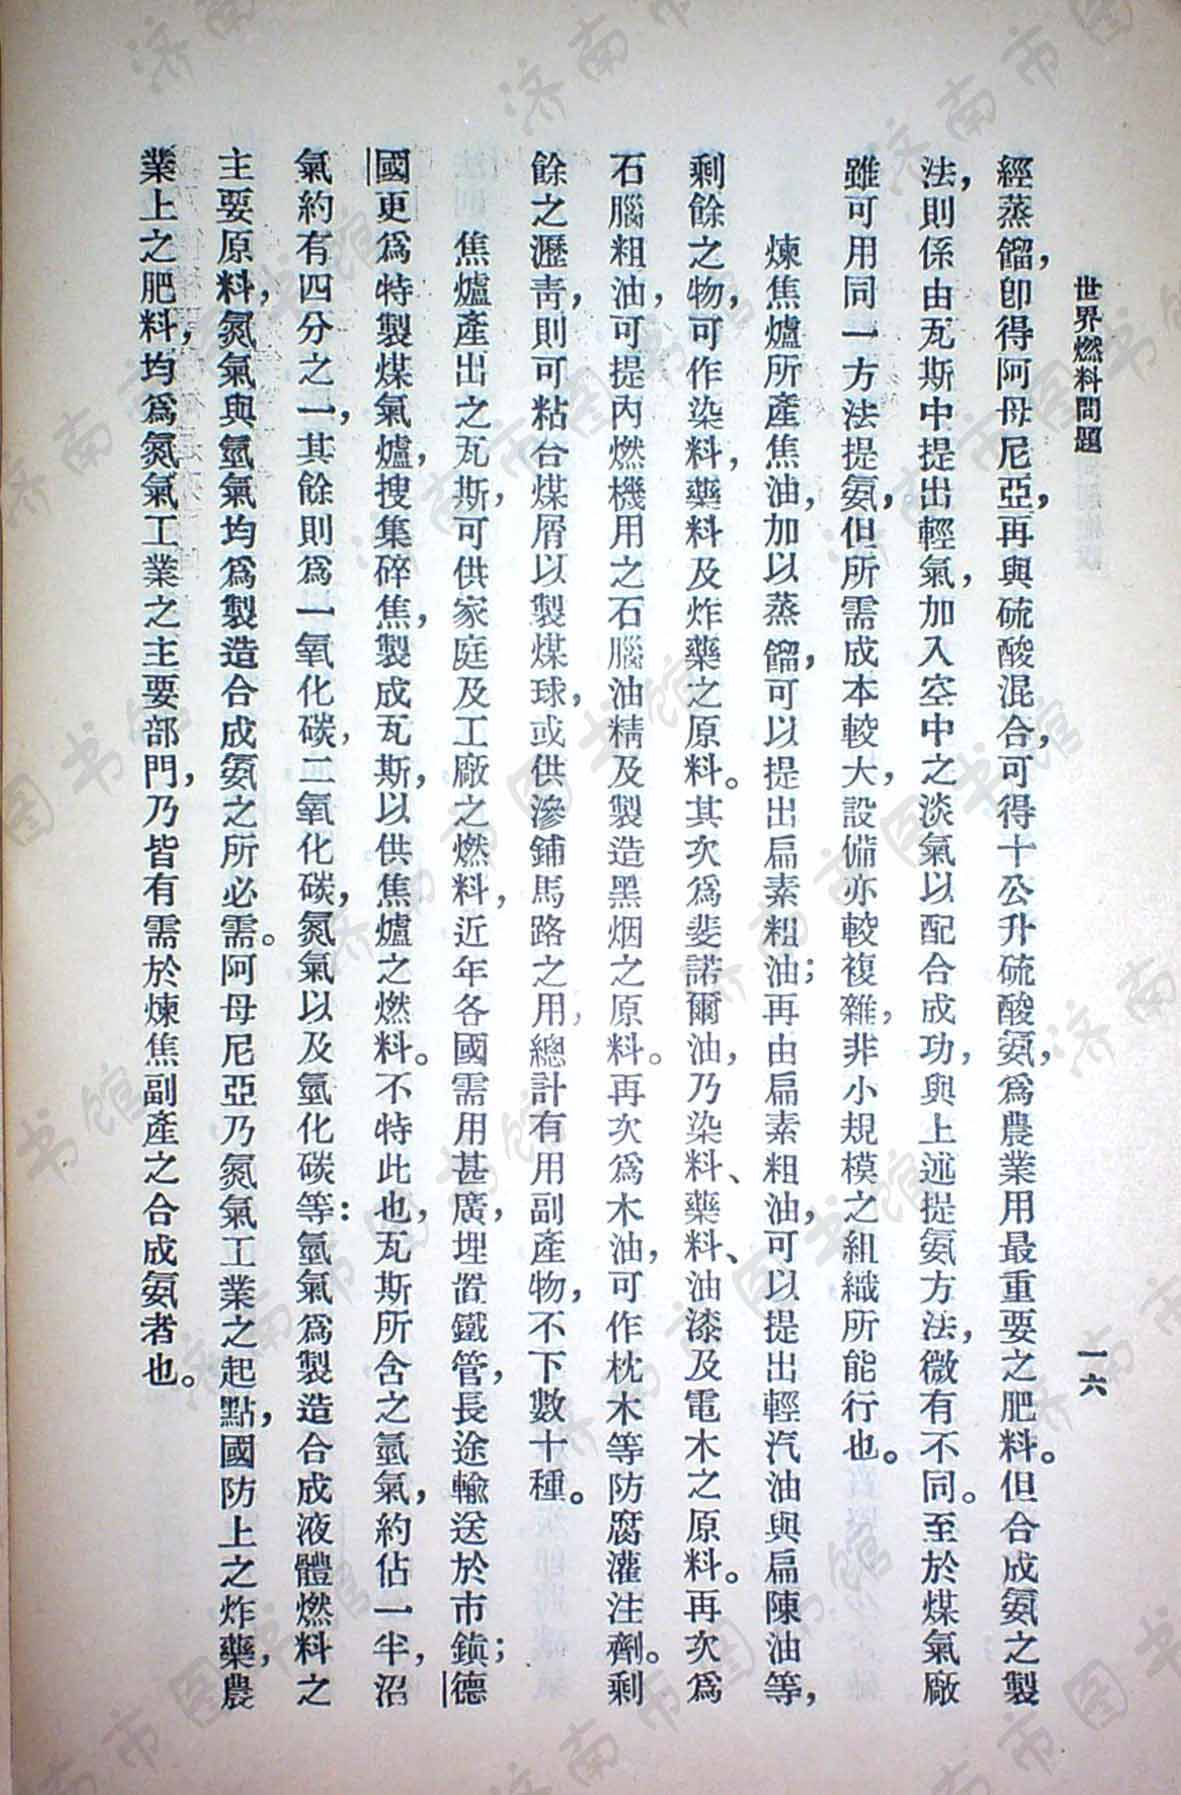 世界燃料問題
一六
經蒸餾，卽得阿母尼亞，再與硫酸混合，可得十公升硫酸氨，爲農業用最重要之肥料。但合成氨之製
法，則係由瓦斯中提出輕氣，加入空中之淡氣以配合成功，與上述提氨方法，微有不同。至於煤氣廠
雖可用同一方法提氨，但所需成本較大，設備亦較複雜，非小規模之組織所能行也。
煉焦爐所產焦油，加以蒸餾，可以提出扁素粗油；再由扁素粗油，可以提出輕汽油與扁陳油等，
剩餘之物，可作染料，藥料及炸藥之原料。其次爲斐諾爾油，乃染料、藥料、油漆及電木之原料。再次爲
石腦粗油，可提內燃機用之石腦油精及製造黑烟之原料。再次爲木油，可作枕木等防腐灌注劑。剩
餘之瀝靑，則可粘合煤屑以製煤球，或供滲鋪馬路之用，總計有用副產物，不下數十種。
焦爐產出之瓦斯，可供家庭及工廠之燃料，近年各國需用甚廣，埋置鐵管，長途輸送於市鎮；德
國更爲特製煤氣爐，搜集碎焦，製成瓦斯，以供焦爐之燃料。不特此也，瓦斯所含之氫氣，約佔一半，沼
氣約有四分之一，其餘則爲一氧化碳，二氧化碳，氮氣以及氫化碳等：氫氣爲製造合成液體燃料之
主要原料，氮氣與氫氣均爲製造合成氨之所必需。阿母尼亞乃氮氣工業之起點，國防上之炸藥，農
業上之肥料，均爲氮氣工業之主要部門，乃皆有需於煉焦副產之合成氨者也。
济南市图书馆